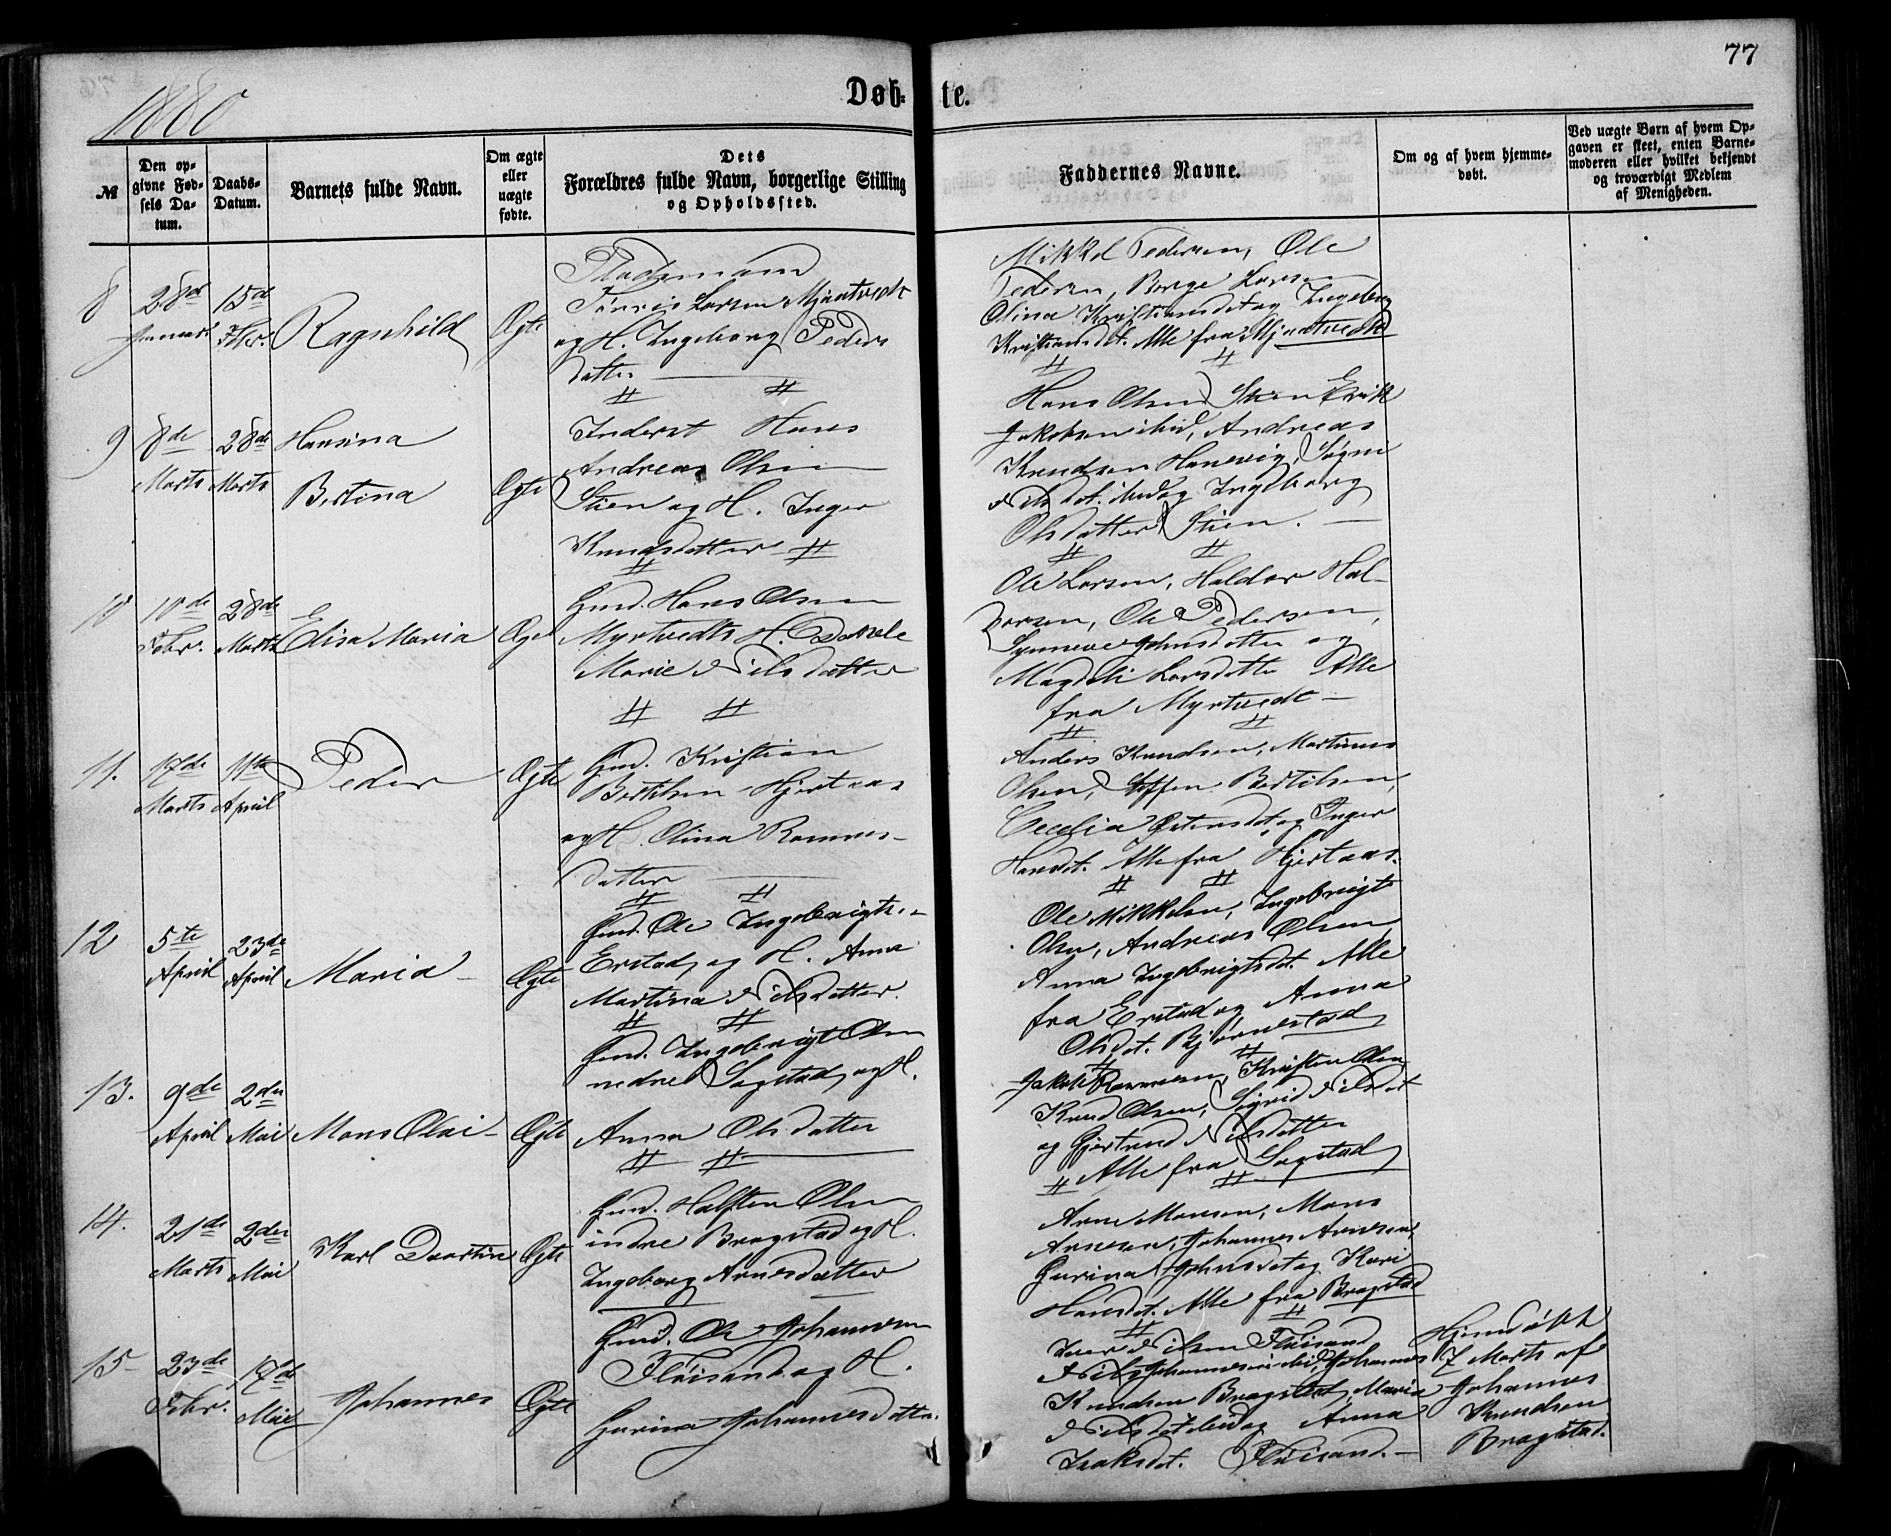 77
1880
Døb-te.
№
Den op-
givne Fød-
sels Da-
tum.
Daabs-
Datum.
Barnets fulde Navn.
Om ægte
eller
uægte
fødte.
Dets
Forældres fulde Navn, borgerlige Stilling
og Opholdssted.
Faddernes Navne.
Om og af hvem hjemme-
døbt.
Ved uægte Børn af hvem Op-
gaven er skeet, enten Barne-
moderen eller hvilket bekjendt
og troværdigt Medlem
af Menigheden.
8
28de
Januar
15de
Febr.
Ragnhild
Ægte
Pladsmand
Tönnis Larsen Mjaatvedt
og H. Ingeborg Peders
datter
Mikkel Pedersen, Ole
Pedersen, Børge Larsen
Olina Kristiansdt og Ingeborg
Kristiansdt. Alle fra Mjaatvedt
9
8de
Marts
28de
Marts
Hansina
Bertina
Ægte
Inderst Hans
Andreas Olsen
Stien og H. Inger
Knudsdatter
Hans Olsen Stien Erik
Jakobsen ibid, Andreas
Knudsen Hanevig, Søgni
Nilsdt. ibid og Ingeborg
Olsdatter Stien.
10
10de
Febr.
28de
Marts
Elisa Maria
Ægte
Gmd. Hans Olsen
Myrtvedt H.
Marie Nilsdatter
Ole Larsen, Haldor Hal-
dorsen, Ole Pedersen,
Synneve Johnsdatter og
Magdeli Larsdatter Alle
fra Myrtvedt
11.
17de
Marts
11te
April
Peder
Ægte
Gmd. Kristian
Bertilsen Hjertaas
og H. Olina Rasmus-
datter
Anders Knudsen, Martinus
Olsen, Steffen Bertilsen,
Cecelia Østensdt, og Inger
Hansdt. Alle fra Hjertaas.
12
5te
April
23de
April
Maria
Ægte
Gmd. Ole Ingebrigts.-
Erstad, og H. Anna
Martina Nilsdatter.
Ole Mikkelsen, Ingebrigt
Olsen, Andreas Olsen,
Anna Ingebrigtsdt. Alle
fra Erstad og Anna
Olsdt. Bjørnestad
13.
9de
April
2den
Mai
Mons Olai
Ægte
Gmd. Ingebrigt Olsen
nedre Sagstad, og H.
Anna Olsdatter
Jakob Rasmusen, Kristen Olsen
Knud Olsen, Sigrid Nilsdt
og Gjertrud Nilsdatter
Alle fra Sagstad
14.
21de
Marts
2den
Mai
Karl
Ægte
Gmd. Halsten Olsen
indre Bragstad og H.
Ingeborg Arnesdatter
Arne Monsen, Mons
Arnesen, Johannes Arnesen,
Gurina Johnsdt og Kari
Hansdt. Alle fra Bragstad
15
23de
Febr.
17de
Mai
Johannes
Ægte
Gmd. Ole Johannesen
Fløisand og H.
Gurina Johannesdatter
Iver Nilsen Fløisand
Nils Johannesen ibid, Johannes
Knudsen Bragstad, Maria
Nilsdt ibid og Anna
Isaksdt. Fløisand.
Hjemdøbt
7 Marts af
Johannes
Knudsen
Bragstad.